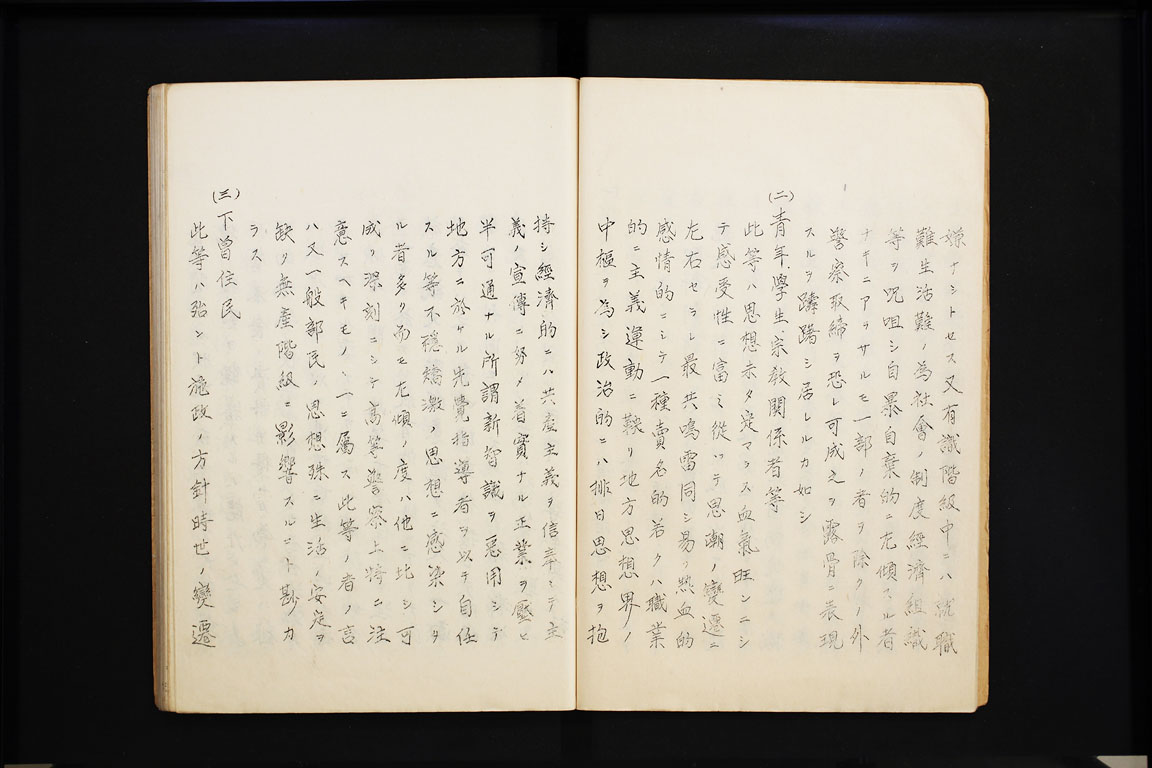 嫌ナシトセス又有識階級中ニハ就職
難生活難ノ為社會ノ制度經濟組織
等ヲ呪咀シ自暴自棄的ニ左傾スル者
ナキニアラサルモ一部ノ者ヲ除クノ外
警察取締ヲ恐レ可成之ヲ露骨ニ表現
スルヲ躊躇シ居レルカ如シ
(二)青年、學生、宗教關係者等
此等ハ思想未タ定マラス血氣旺ンニシ
テ感受性ニ富ミ從ツテ思潮ノ變遷ニ
左右セラレ最共鳴雷同シ易ク熱血的
感情的ニシテ一種賣名的若クハ職業
的ニ主義運動ニ鞅リ地方思想界ノ
中樞ヲ為シ政治的ニハ排日思想ヲ抱
持シ經濟的ニハ共産主義ヲ信奉シテ主
義ノ宣傳ニ努メ着實ナル正業ヲ壓ヒ
半可通ナル所謂新智識ヲ惡用シテ
地方ニ於ケル先覺指導者ヲ以テ自任
スル等不穩矯激ノ思想ニ感染シタ
ル者多ク而モ左傾ノ度ハ他ニ比シ可
成リ深刻ニシテ高等警察上特ニ注
意スヘキモノハ一ニ屬ス此等ノ者ノ言
ハ又一般部民ノ思想殊ニ生活ノ安定ヲ
缺ク無産階級ニ影響スルコト尠カ
ラス
(三)下曾住民
此等ハ殆ント施政ノ方針時世ノ變遷